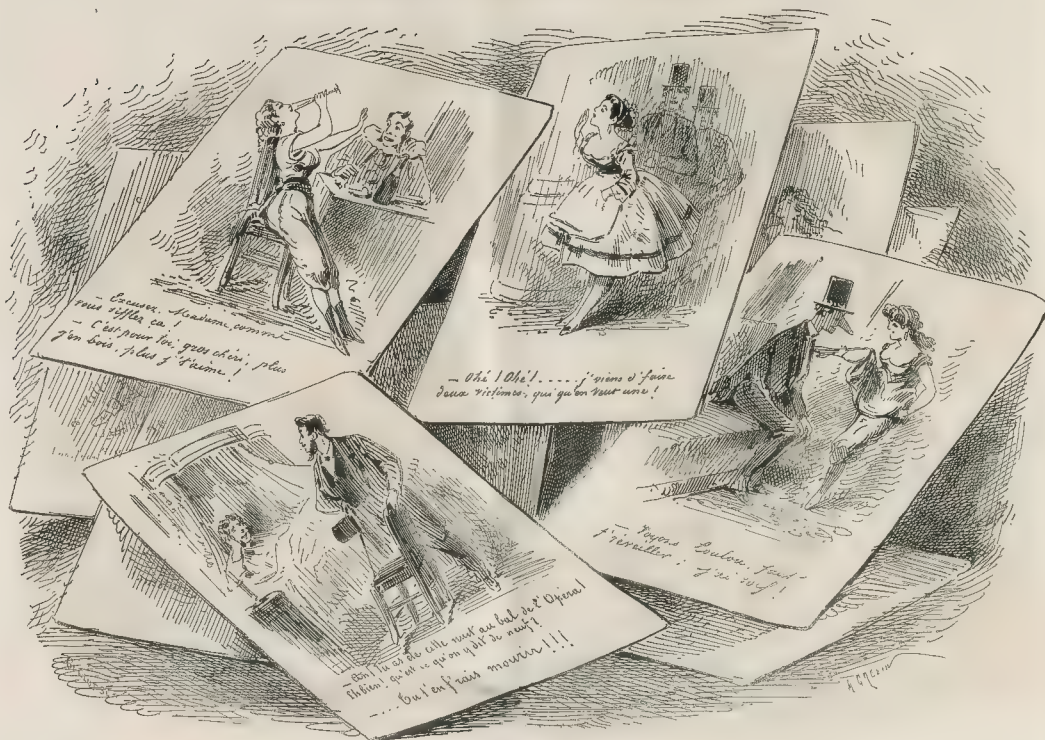 — Excusez. Madame, comme
vous sifflez ça !
— C'est pour toi, gros chéri, plus
j'en bois, plus j't'aime !
— Ohé ! Ohé ! .... j'viens d'faire
deux victimes, qui qu'en veut une !
— Voyons Loulou, faut
j'ai soif !
— Ah ! Tu as de cette nuit au bal de l'Opéra !
Eh bien ! qu'est-ce qu'on y dit de neuf ?
— .... Tu t'en f'rais mourir !!!